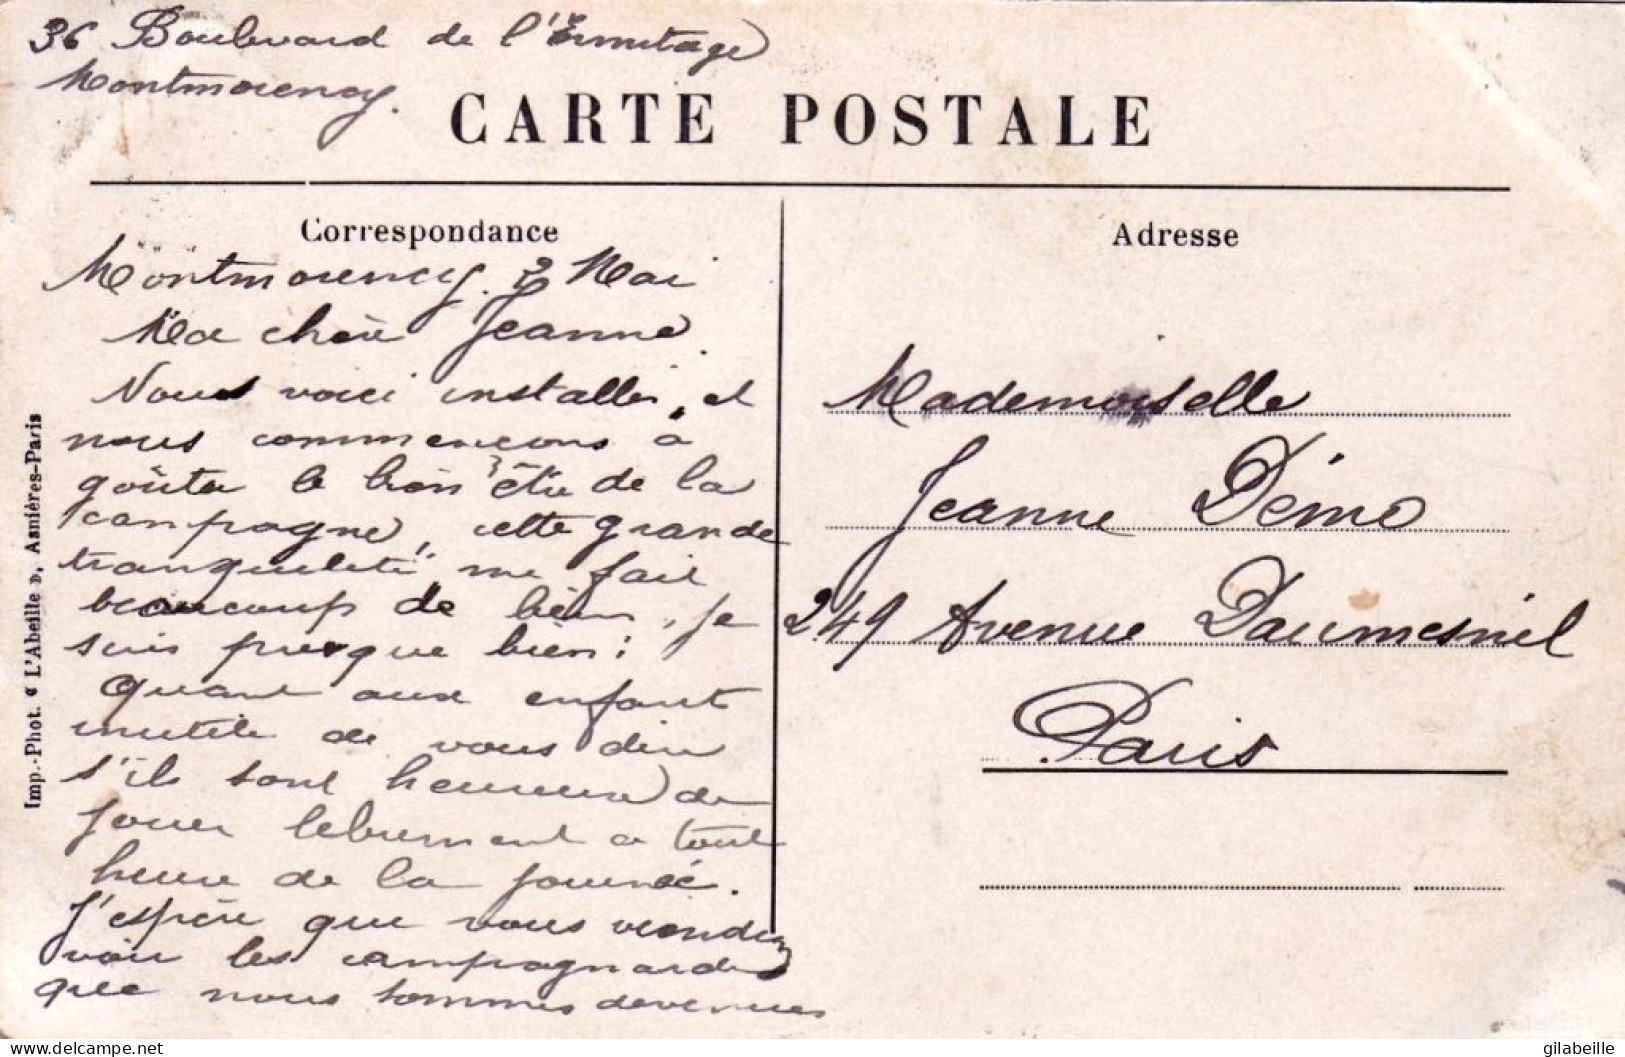 36 Boulevard de l'Ermitage
Montmorency.
CARTE POSTALE
Correspondance
Montmorency. 2 Mai
Ma chère Jeanne.
Nous voici installés, et
nous commençons à
goûter le bien être de la
campagne, cette grande
tranquileté me fait
beaucoup de bien, je
suis presque bien;
Quant aux enfants
inutile de vous dire
s'ils sont heureux de
jouer librement a tout
heure de la journée.
J'espère que vous viendrez
voir les campagnardes
que nous sommes devenues
Adresse
Mademoiselle
Jeanne Démo
249 Avenue Daumesnil
Paris
Imp.-Phot. « L'Abeille », Asnières-Paris
gilabeille
delcampe.net